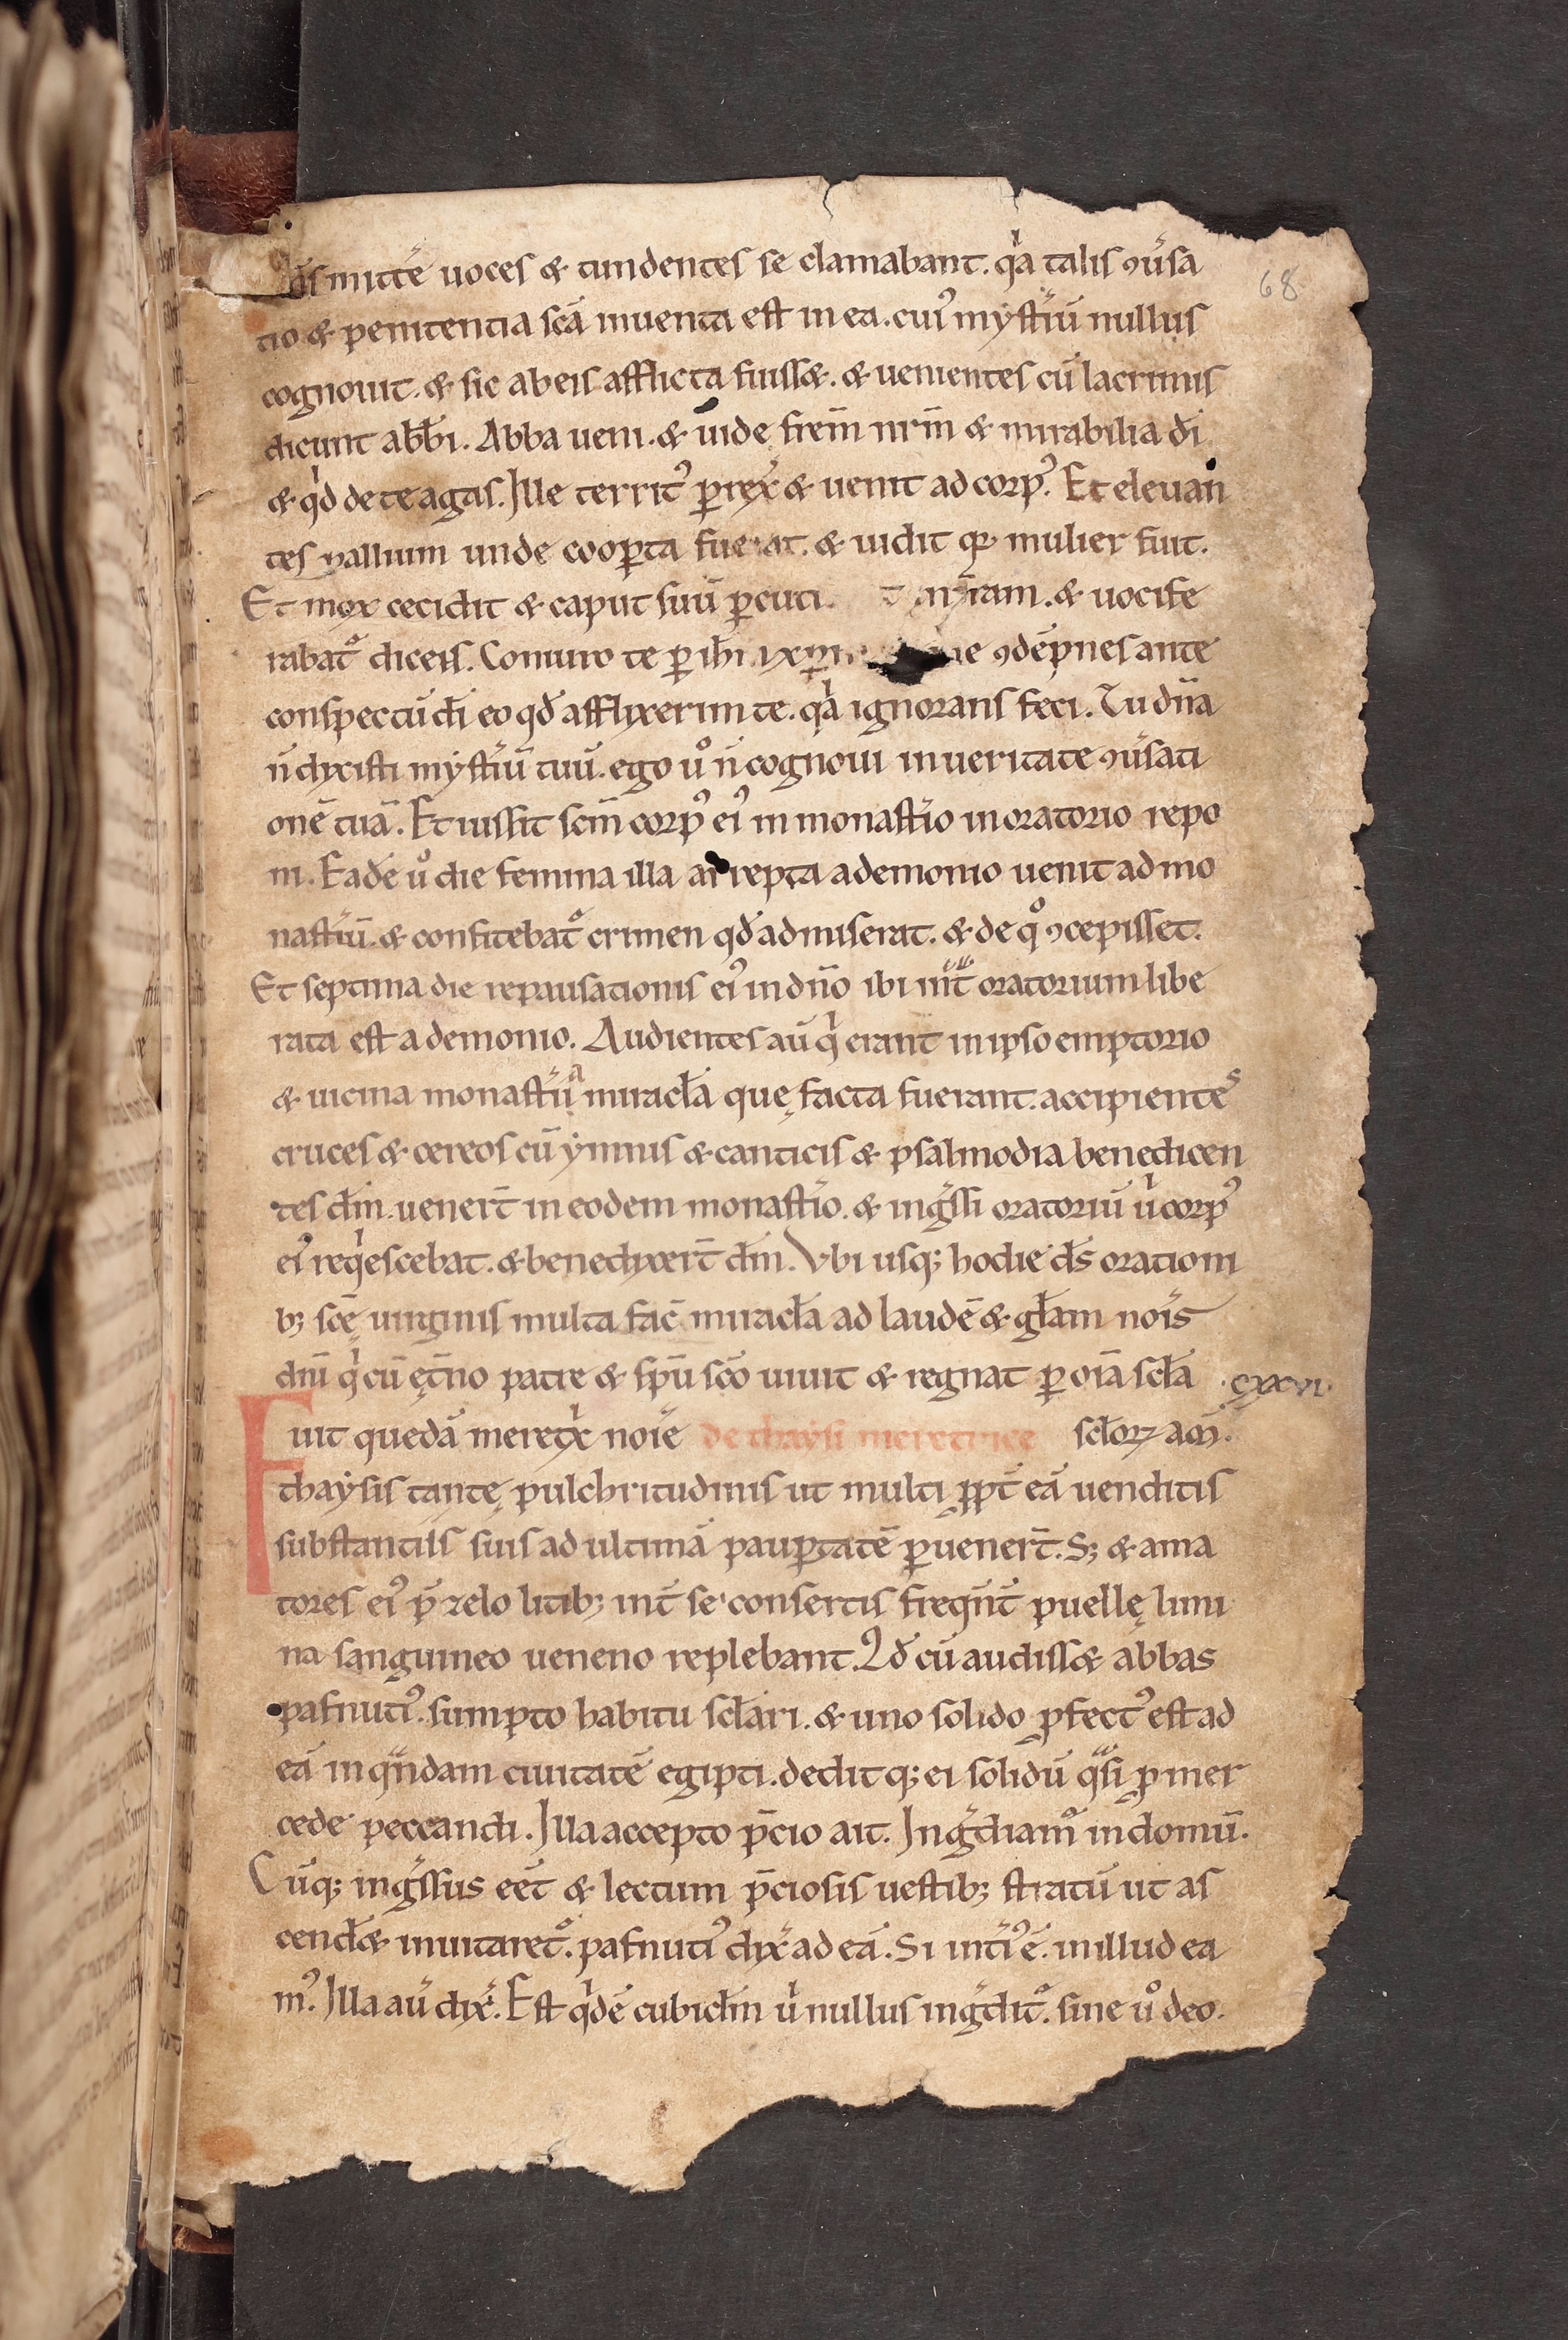 mittē uoces & tundentes se clamabant. q̇a talis ꝯu̾sa
tio & penitentia scā inuenta est in ea. cuiꝰ myst̾iū nullus
cognouit. & sic ab eis afflicta fuiss&. & uenientes cū lacrimis
dicunt abb̄i. Abba ueni. & uide frem̄ nrm̄ & mirabilia dī
& qd̄ de te agas. Ille territꝰ ꝑrex̾ & uenit ad corpꝰ. Et eleuan
tes pallium unde cooꝑta fuerat. & uidit qꝛ mulier fuit.
Et mox cecidit & caput suū ꝑcuti & uocife
rabat᷑ dicens. Coniuro te ꝑ ihm̄ ꝯdēpnes ante
conspectū dī eo qd̄ afflixerim te. q̇a ignorans feci. Tu dn̄a
n̄ dixisti myst̾iū tuū. ego uͦ n̄ cognoui in ueritate ꝯu̾sati
onē tuā. Et iussit scm̄ corpꝰ eiꝰ in monast̾io in oratorio repo
ni. Eadē uͦ die femina illa arrepta a demonio uenit ad mo
nast̾iū. & confitebat᷑ crimen qd̄ admiserat. & de qͦ ꝯcepisset.
Et septima die repausationis eiꝰ in dn̄o ibi int̄ oratorium libe
rata est a demonio. Audientes aū q̇ erant in ipso emptorio
& uicina monast̾ia miracl̄a quę facta fuerant. accipientes
cruces & cereos cū ẏmnis & canticis & psalmodia benedicen
tes dm̄. uener̄t in eodem monast̾io. & ing̾ssi oratoriū u̇ corpꝰ
eiꝰ req̇escebat. & benedixer̄t dm̄. Vbi usqꝫ hodie ds̄ oration
bꝫ scę̄ uirginis multa fac̄ miracl̄a ad laudē & gl̄am nois̄
dn̄i q̇ cū ęt̄no patre & spū scō uiuit & regnat ꝑ oīa scl̄a
.cxxvi.
Fuit quedā meretẋ noīe de thaysi meretrice scl̄oꝝ am̄.
thaẏsis tantę pulchritudinis ut multi ꝓpt̄ eā uenditis
substantiis suis ad ultimā pauꝑtatē ꝑuener̄t. Sꝫ & ama
tores eiꝰ p̄ zelo litibꝫ int̄ se consertis freqn̄t̄ puellę limi
na sanguineo ueneno replebant. Qd̄ cū audiss& abbas
pafnutiꝰ. sumpto habitu scl̄ari. & uno solido ꝓfectꝰ est ad
eā in qͣndam ciuitatē egipti. deditqꝫ ei solidū qͣsi ꝓ mer
cede peccandi. Illa accepto p̄cio ait. Ing̾diam᷑ in domū.
Cūqꝫ ing̾ssus eēt & lectum p̄ciosis uestibꝫ stratū ut as
cend̄& inuitaret᷑. pafnutiꝰ dix̾ ad eā. Si int̾iꝰ ē. in illud ea
mꝰ. Illa aū dix̾. Est q̇dē cubicl̄m u̇ nullus ing̾dit᷑. sine uͦ deo.
68